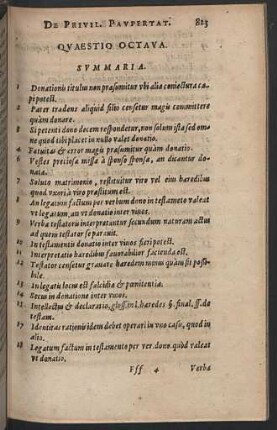 DE PRIVIL. PAVPERTAT. 823
QVAESTIO OCTAVA.
SVMMARIA.
1 Donationis titulus non præsumitur vbi alia coniectura ca-
pi potest.
2 Pater tradens aliquid filio censetur magis committere
quàm donare.
3 Si petenti dono decem respondetur, non solum ista sed om-
ne quod tibi placet in nullo valet donatio.
4 Fatuitas & error magis præsumitur quàm donatio.
6 Vestes preciosæ missæ à sponso sponsæ, an dicantur do-
nata.
7 Soluto matrimonio, restituitur viro vel eius hæredibus
quod vxori à viro præstitum est.
8 An legatum factum per verbum dono in testamẽto valeat
vt legatum, an vt donatio inter viuos.
9 Verba testatoris interpretantur secundum naturam actus
ad quem testator se parauit.
10 In testamentis donatio inter viuos fieri potest.
11 Interpretatio hæredibus fauorabilior facienda est.
12 Testator censetur grauare hæredem minus quàm sit possi-
bile.
13 In legatis locus est falcidiæ & pœnitentiæ.
14 Secus in donatione inter viuos.
15 Intellectus & declaratio, gloss. in l. hæredes §. final. ff. de
testam.
17 Identitas rationis idem debet operari in vno casu, quod in
alio.
18 Legatum factum in testamento per ver. dono. quod valeat
vt donatio.
Fff 4 Verba